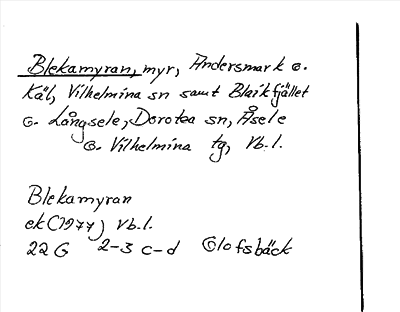 Blekamyran, myr, Andersmark o.
Käl, Vilhelmina sn samt Blaikfjället
o. Långsele, Dorotea sn, Åsele
o. Vilhelmina tg, Vb.l.
Blekamyran
ek (1977) Vb.l.
22 G 2-3 c-d Glofsbäck